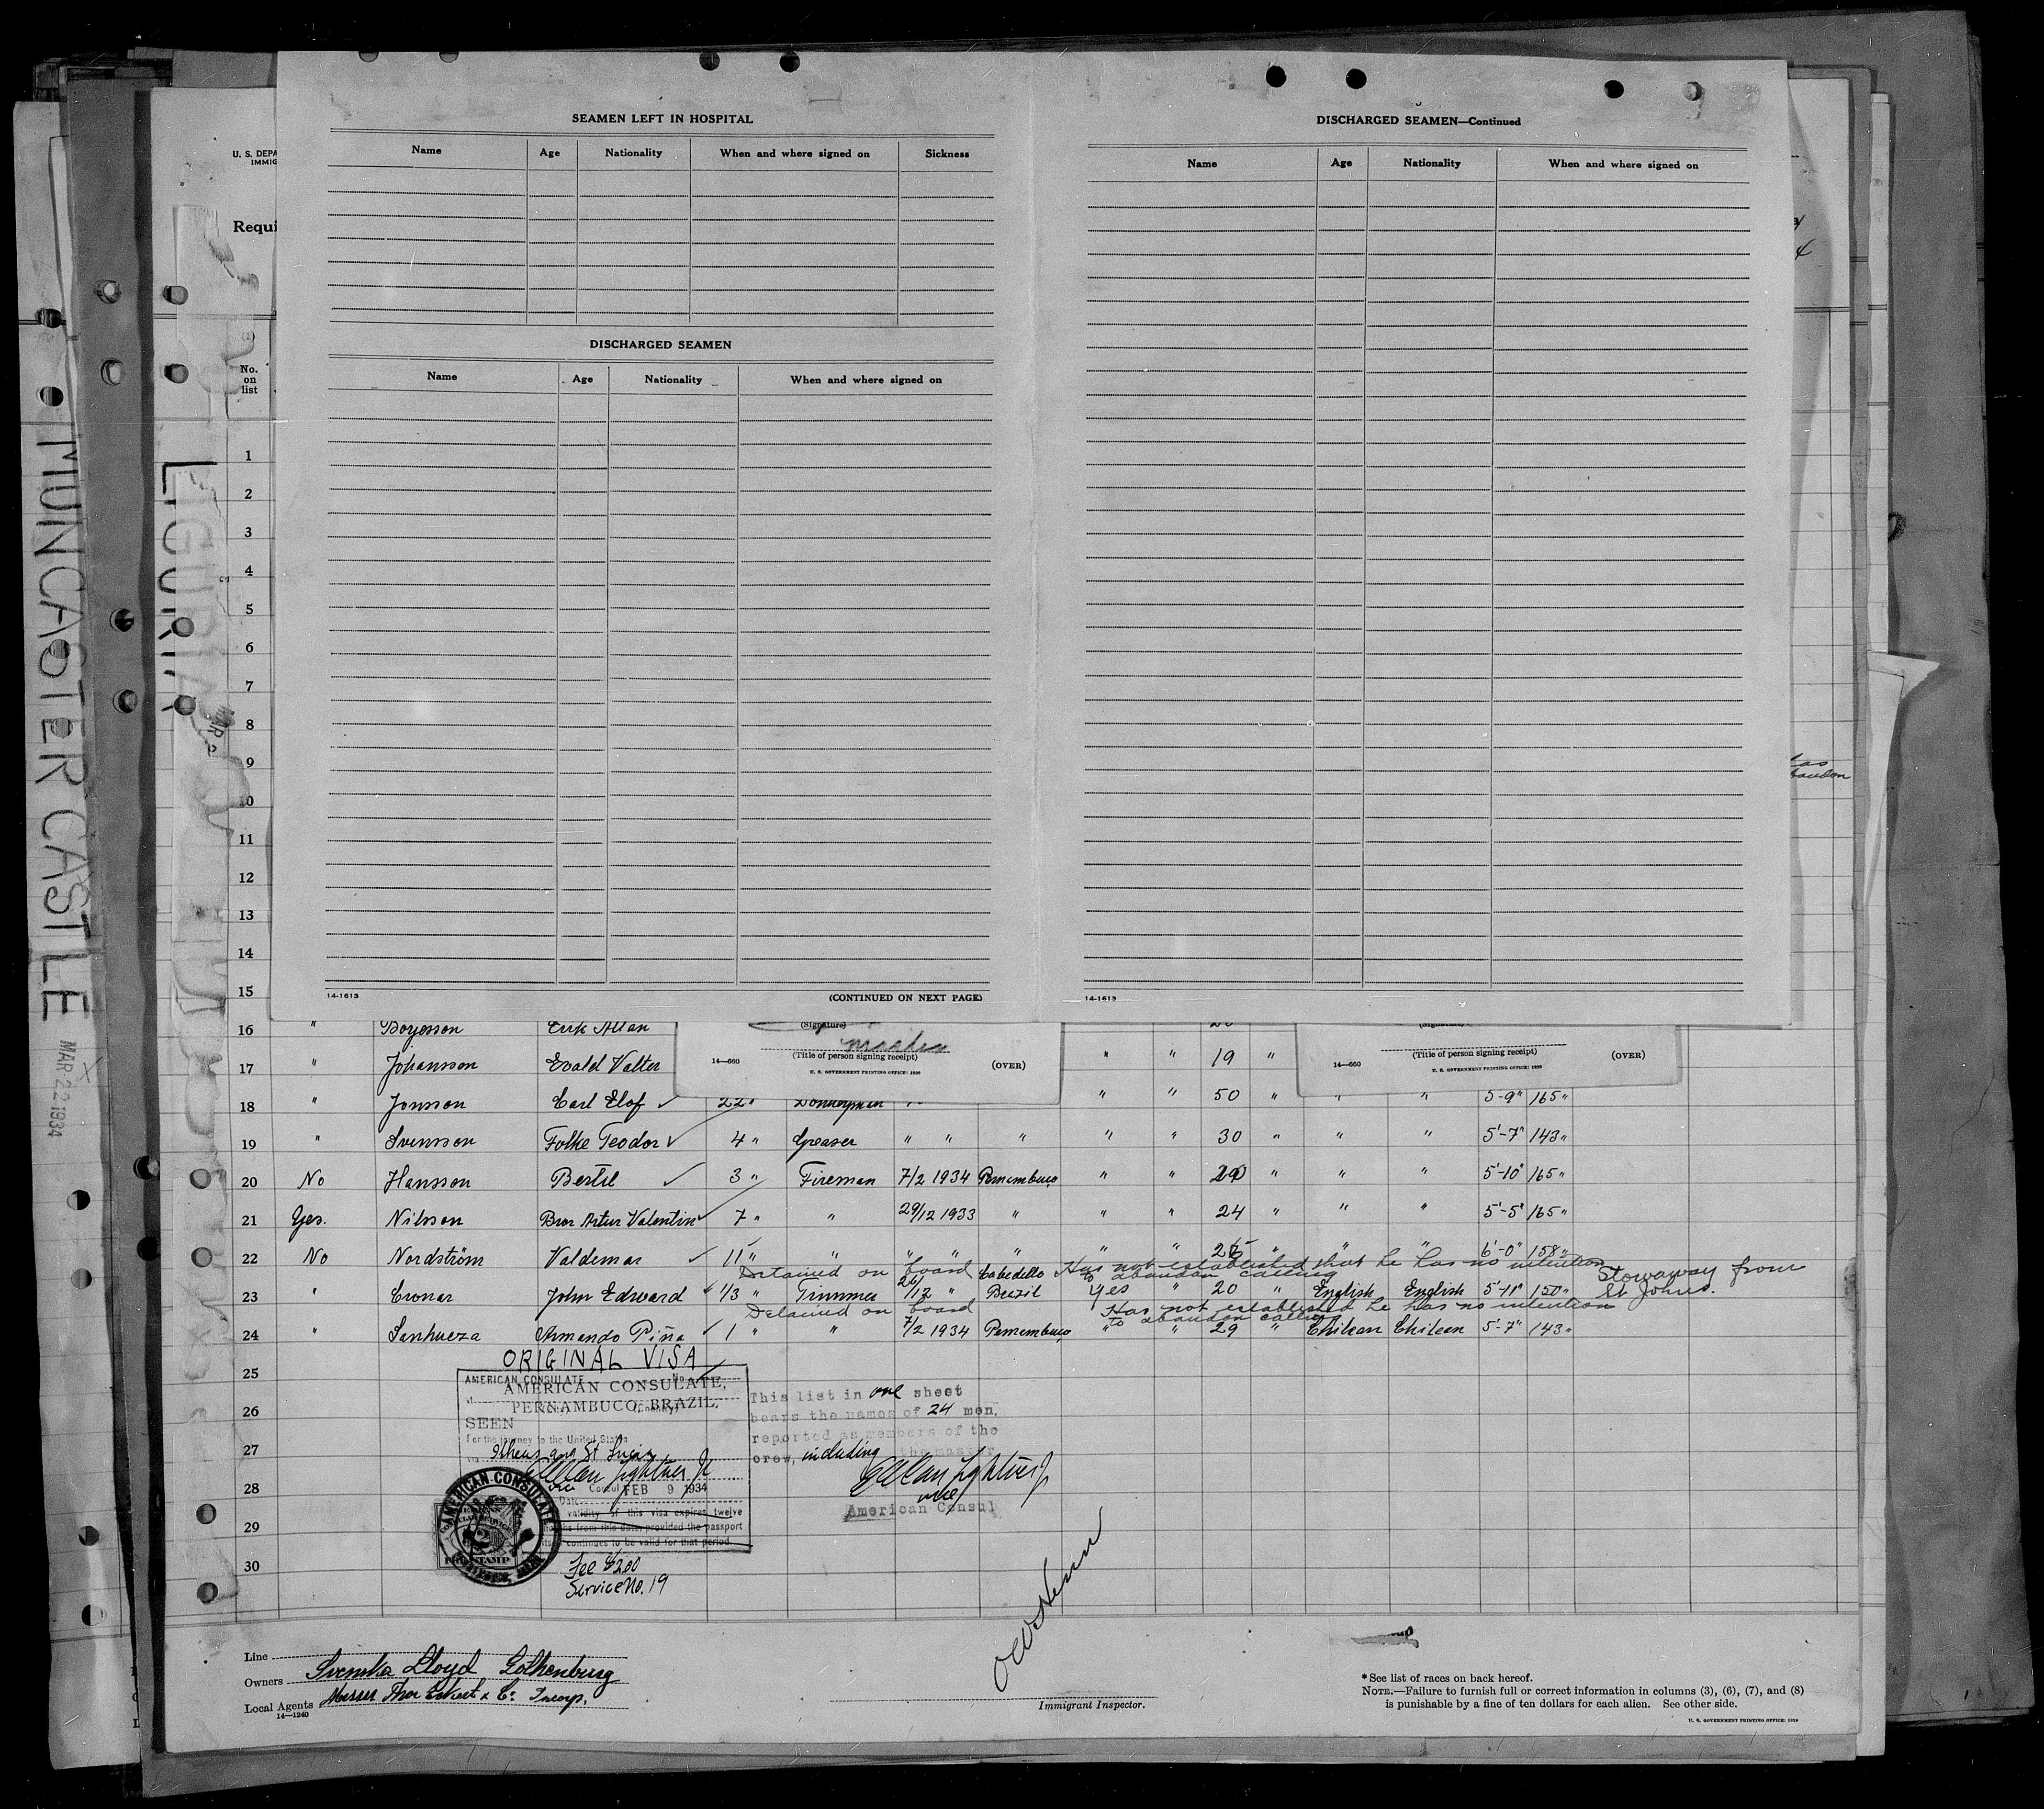 SEAMEN LEFT IN HOSPITAL
Name Age Nationality When and where signed on Sickness
DISCHARGED SEAMEN
Name Age Nationality When and where signed on
14-1613 (CONTINUED ON NEXT PAGE)
DISCHARGED SEAMEN—Continued
Name Age Nationality When and where signed on
14-1613
MUNCASTER CASTLE
MAR 22 1934
LIGURIA
MAR 2
U. S. DEPA
IMMIG
Requi
No.
on
list
1
2
3
4
5
6
7
8
9
10
11
12
13
14
15
16 " Boyesson Erik Allan
(Signature)
14—660 (Title of person signing receipt) (OVER)
U. S. GOVERNMENT PRINTING OFFICE: 1930
(Signature)
14—660 (Title of person signing receipt) (OVER)
U. S. GOVERNMENT PRINTING OFFICE: 1930
17 " Johansson Evald Valter " " 19 "
18 " Jonsson Carl Elof 22 " Donkeyman " " 50 " " " 5-9" 165 "
19 " Svensson Folke Teodor 4 " Greaser " " " " " 30 " " " 5'-7" 143 "
20 No Hansson Bertil 3 " Fireman 7/2 1934 Pernambuco " " 20 " " " 5'-10" 165 "
21 Yes. Nilsson Bror Artur Valentin 7 " " 29/12 1933 " " " 24 " " " 5'-5" 165 "
22 No Nordström Valdemar 11 " " " " " " " 26 " " " 6'-0" 158 "
Detained on board Has not established that he has no intention to abandon calling
23 " Cronar John Edward 1/3 " Trimmer 26/12 " Cabedello Brazil Yes " 20 " English English 5'-11" 150 " Stowaway from St Johns.
Detained on board Has not established he has no intention to abandon calling
24 " Sanhueza Armando Piña 1 " " 7/2 1934 Pernambuco " " 29 " Chilean Chilean 5'-7" 143 "
25
26
27
28
29
30
ORIGINAL VISA
AMERICAN CONSULATE No.
AMERICAN CONSULATE,
PERNAMBUCO, BRAZIL.
SEEN
For the journey to the United States
via Ilheus and St Lucia
E Allan Lightner Jr
Vice Consul FEB 9 1934
Date
validity of this visa expires twelve
months from this date, provided the passport
continues to be valid for that period.
AMERICAN CONSULATE
Fee $2.00
Service No. 19
This list in one sheet
bears the names of 24 men,
reported as members of the
crew, including the master
E Allan Lightner Jr
vice
American Consul
Line
Owners Svenska Lloyd Gothenburg
Local Agents Messrs Thor Eckert & Co. Incorp.
14—1240
Immigrant Inspector.
* See list of races on back hereof.
NOTE.—Failure to furnish full or correct information in columns (3), (6), (7), and (8)
is punishable by a fine of ten dollars for each alien. See other side.
U. S. GOVERNMENT PRINTING OFFICE: 1930